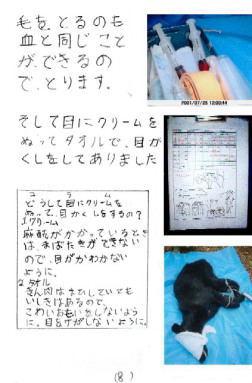 毛を、とるのも
血と同じこと
ができるの
で、とります。
そして目にクリームを
ぬってタオルで、目か
くしをしてありました
コラム
どうして目にクリームを
ぬって、目かくしをするの？
1クリーム
麻酔がかかっていると
は、まばたきができない
ので、目がかわかない
ように。
2タオル
きん肉はまひしていても
いしきはあるので、
こわいおもいをしないよう
に。目をけがしないように。
2001/07/26 12:00:44
(8)